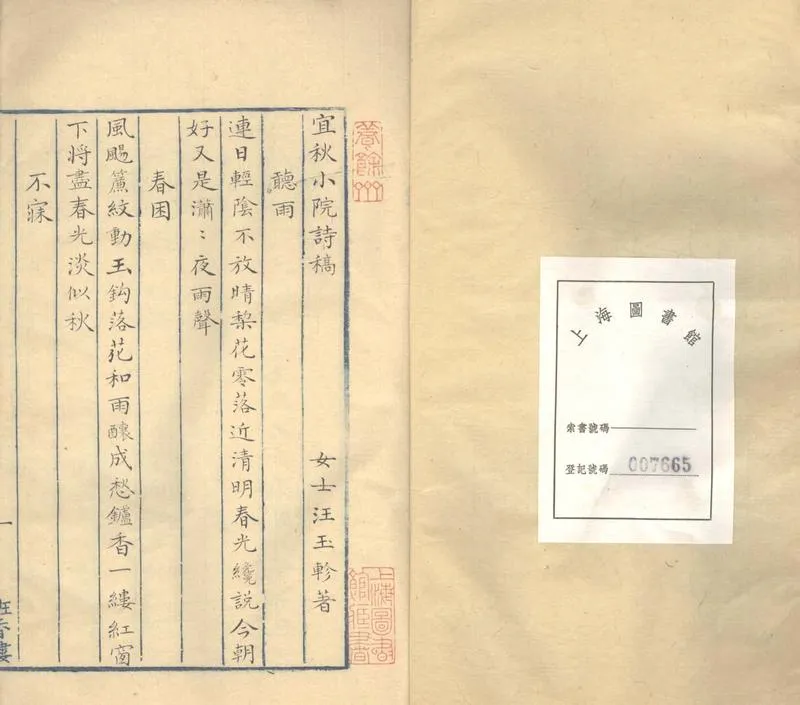 上海圖書館
索書號碼
登記號碼 007665
上海圖書館藏書
宜秋小院詩稿 女士汪玉軫著
聽雨
連日輕陰不放晴梨花零落近清明春光纔說今朝
好又是瀟〻夜雨聲
春困
風颺簾紋動玉鈎落花和雨釀成愁鑪香一縷紅窗
下將盡春光淡似秋
不寐
一